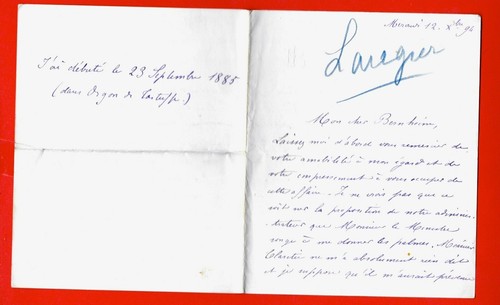 J'ai débuté le 23 Septembre 1885
(dans Orgon de Tartuffe.)
Mercredi 12. Xbre 94
Laugier
Mon cher Bernheim,
Laissez moi d'abord vous remercier de
votre amabilité à mon égard et de
votre empressement à vous occuper de
cette affaire. Je ne crois pas que ce
soit sur la proposition de notre adminis-
trateur que Monsieur le Ministre
songe à me donner les palmes. Monsieur
Claretie ne m'a absolument rien dit
et je suppose qu'il m'aurait prévenu